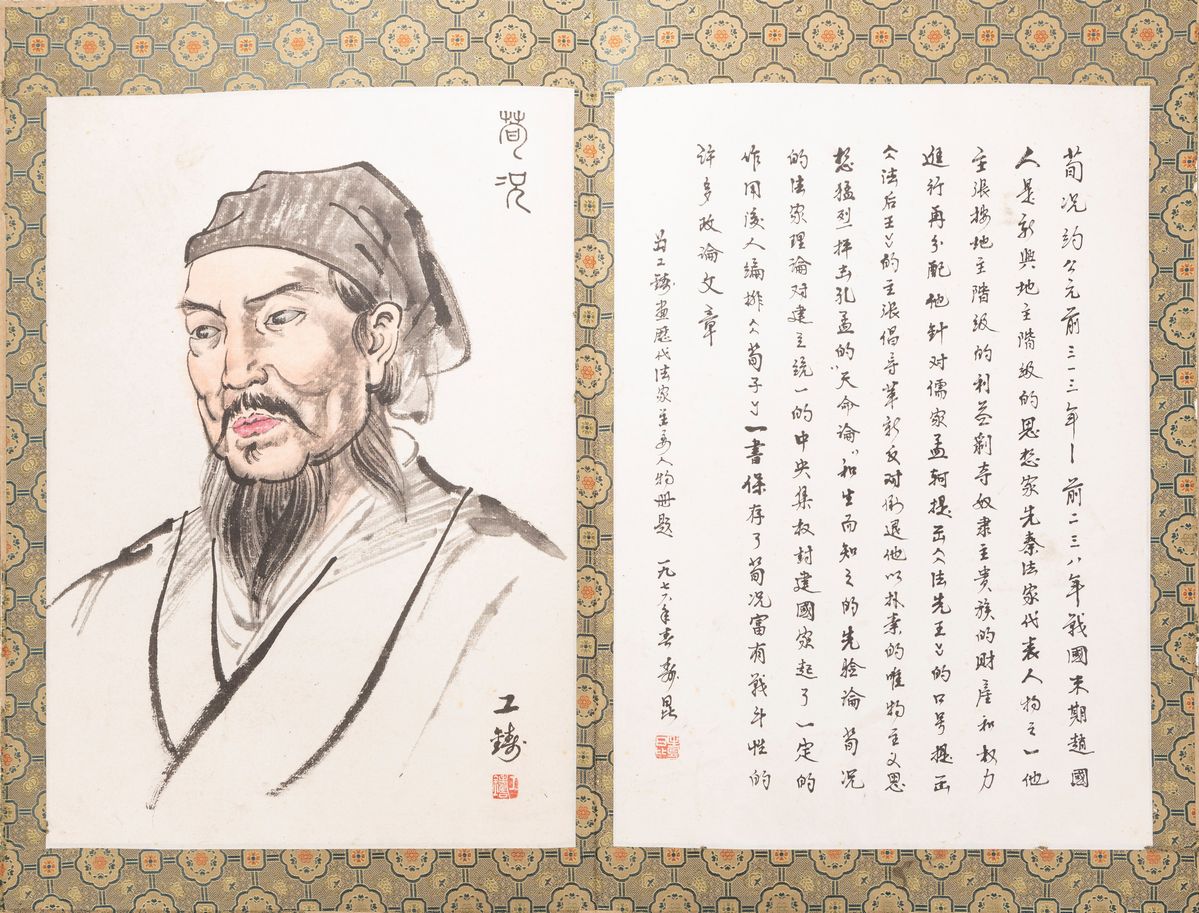 荀况
工鑄
荀况约公元前三一三年—前二三八年戰國末期趙國
人是新興地主階級的思想家先秦法家代表人物之一他
主張按地主階級的利益剥夺奴隶主贵族的財產和权力
進行再分配他針对儒家孟軻提出《法先王》的口号提出
《法后王》的主張倡导革新反对倒退他以朴素的唯物主义思
想猛烈抨击孔孟的“天命論”和生而知之的先驗論荀况
的法家理論对建立統一的中央集权封建國家起了一定的
作用後人編排《荀子》一書保存了荀况富有戰斗性的
許多政論文章
为工鑄畫歷代法家主要人物册題 一九七六年春壽昆